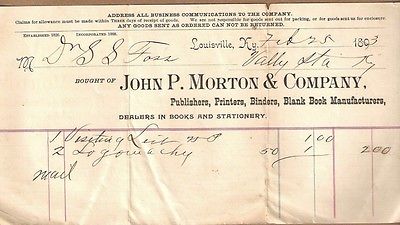 ADDRESS ALL BUSINESS COMMUNICATIONS TO THE COMPANY.
Claims for allowance must be made within Three days of receipt of goods. We are not responsible for goods sent out for packing, or for goods sent us for enclosure.
ANY GOODS SENT AS ORDERED CAN NOT BE RETURNED.
ESTABLISHED 1826. INCORPORATED 1889.
Louisville, Ky. Feb 25 1893
M Dr S S Foss Vally Sta Ky
BOUGHT OF JOHN P. MORTON & COMPANY,
Publishers, Printers, Binders, Blank Book Manufacturers,
DEALERS IN BOOKS AND STATIONERY.
1 Visiting List 1 00
2 Logomachy 50 1 2 00
mail